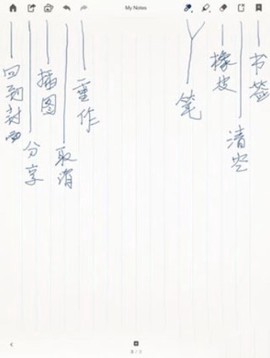 My Notes
回到封面
分享
插图
取消
重作
笔
橡皮
清空
书签
8 / 8